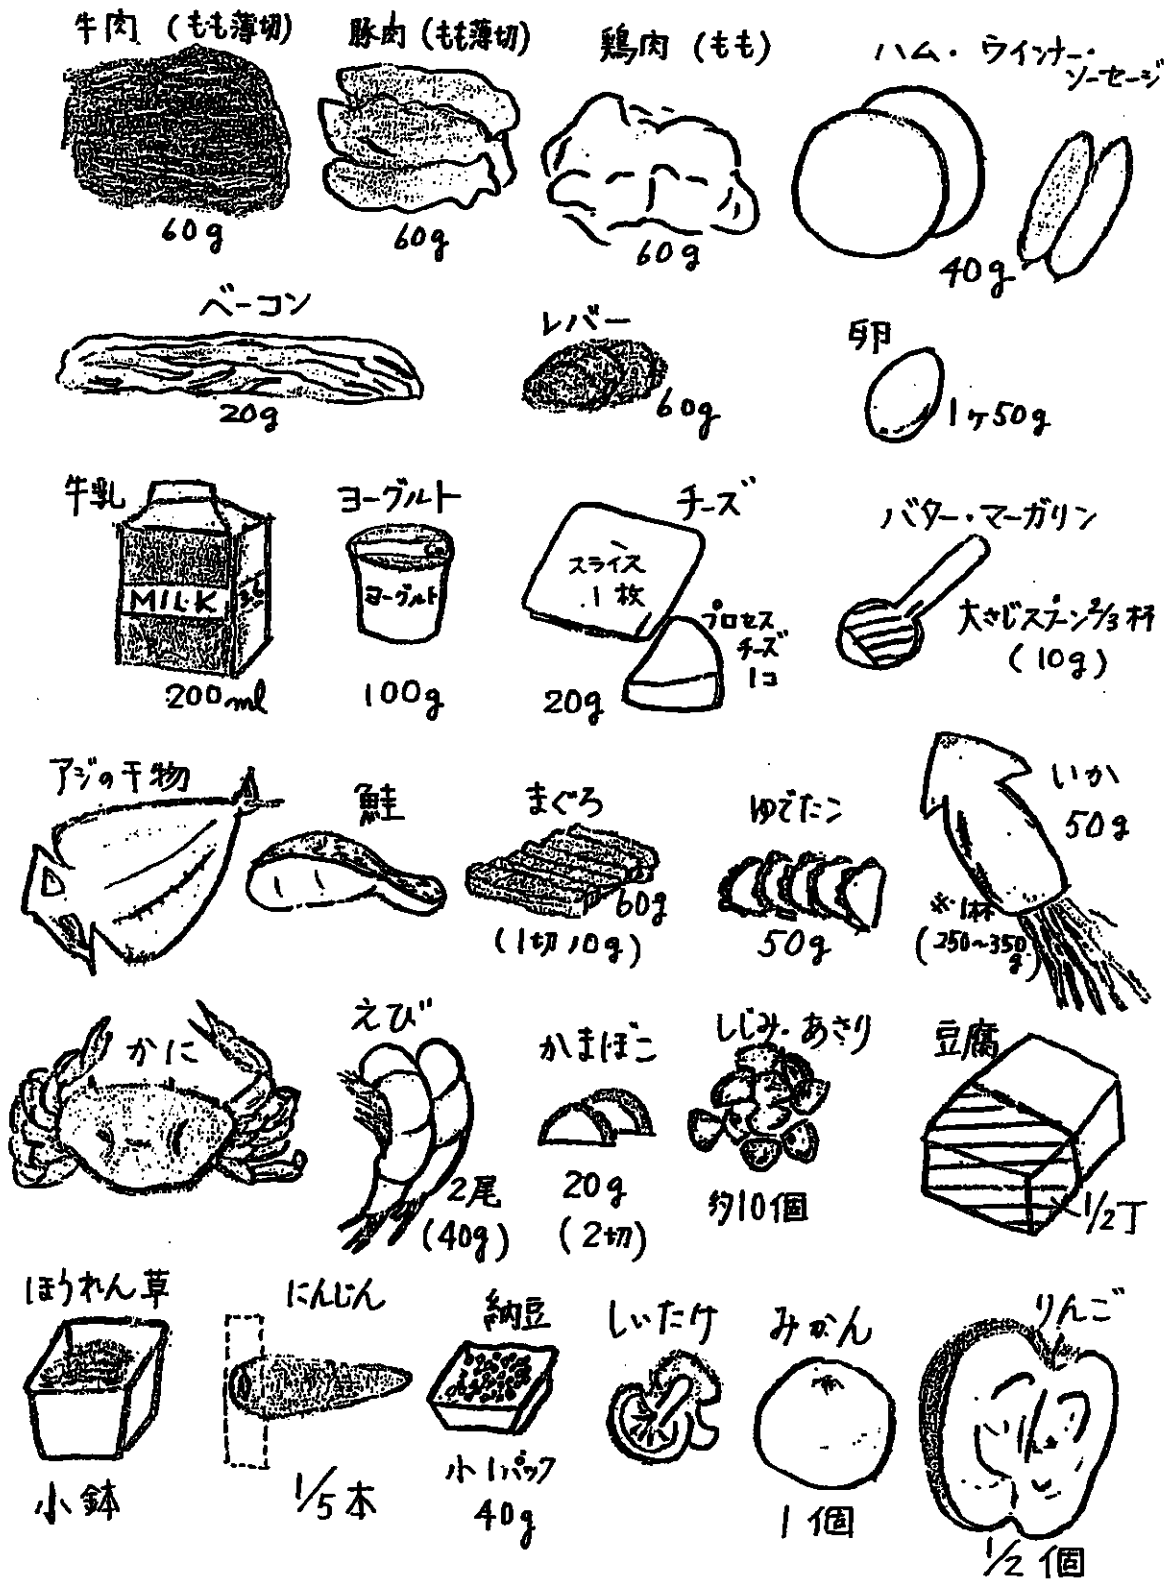 牛肉 (もも薄切)
60g
豚肉 (もも薄切)
60g
鶏肉 (もも)
60g
ハム・ウインナー・
ソーセージ
40g
ベーコン
20g
レバー
60g
卵
1ケ50g
牛乳
MILK
200ml
ヨーグルト
ヨーグルト
100g
チーズ
スライス
1枚
プロセス
チーズ
1コ
20g
バター・マーガリン
大さじスプーン2/3杯
(10g)
アジの干物
鮭
まぐろ
60g
(1切10g)
ゆでたこ
50g
いか
50g
※1杯
(250~350g)
かに
えび
2尾
(40g)
かまぼこ
20g
(2切)
しじみ・あさり
約10個
豆腐
1/2丁
ほうれん草
小鉢
にんじん
1/5本
納豆
小1パック
40g
しいたけ
みかん
1個
りんご
1/2個